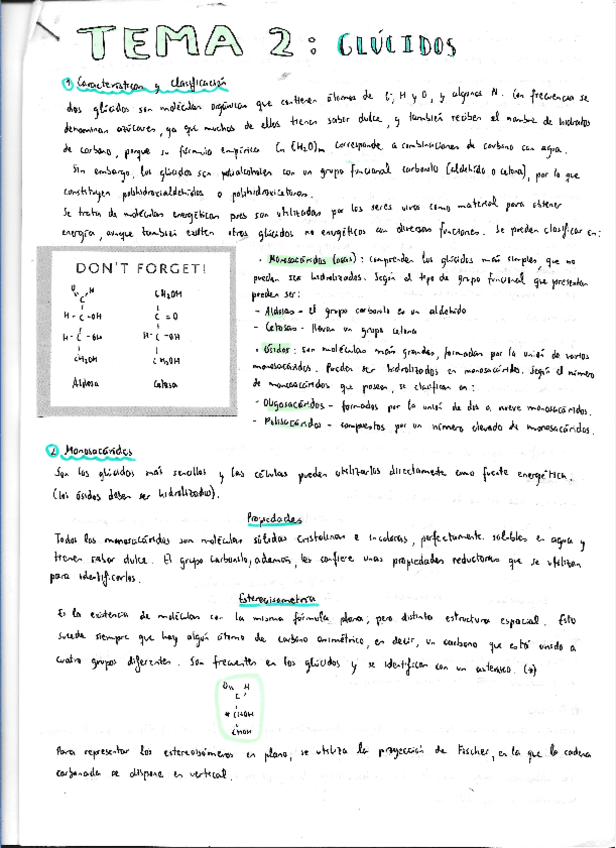 TEMA 2: GLÚCIDOS
1 Características y clasificación
Los glúcidos son moléculas orgánicas que contienen átomos de C, H y O, y algunos N. Con frecuencia se
denominan azúcares, ya que muchos de ellos tienen sabor dulce, y también reciben el nombre de hidratos
de carbono, porque su fórmula empírica Cn(H2O)m corresponde a combinaciones de carbono con agua.
Sin embargo, los glúcidos son polialcoholes con un grupo funcional carbonilo (aldehído o cetona), por lo que
constituyen polihidroxialdehídos o polihidroxicetonas.
Se trata de moléculas energéticas pues son utilizadas por los seres vivos como material para obtener
energía, aunque también existen otros glúcidos no energéticos con diversas funciones. Se pueden clasificar en:
· Monosacáridos (osas): comprenden los glúcidos más simples, que no
pueden ser hidrolizados. Según el tipo de grupo funcional que presentan
pueden ser:
- Aldosas - el grupo carbonilo es un aldehído
- Cetosas - llevan un grupo cetona
· Ósidos: son moléculas más grandes, formadas por la unión de varios
monosacáridos. Pueden ser hidrolizados en monosacáridos. Según el número
de monosacáridos que posean, se clasifican en:
- Oligosacáridos - formados por la unión de dos a nueve monosacáridos.
- Polisacáridos - compuestos por un número elevado de monosacáridos.
DON'T FORGET!
O H CH2OH
C
H-C-OH C=O
H-C-OH H-C-OH
CH2OH CH2OH
Aldosa Cetosa
2 Monosacáridos
Son los glúcidos más sencillos y las células pueden utilizarlos directamente como fuente energética.
(los ósidos deben ser hidrolizados).
Propiedades
Todos los monosacáridos son moléculas sólidas cristalinas e incoloras, perfectamente solubles en agua y
tienen sabor dulce. El grupo carbonilo, además, les confiere unas propiedades reductoras que se utilizan
para identificarlos.
Estereoisomería
Es la existencia de moléculas con la misma fórmula plana, pero distinta estructura espacial. Esto
sucede siempre que hay algún átomo de carbono asimétrico, es decir, un carbono que está unido a
cuatro grupos diferentes. Son frecuentes en los glúcidos y se identifican con un asterisco. (*)
O H
C
* CHOH
CH2OH
Para representar los estereoisómeros en plano, se utiliza la proyección de Fischer, en la que la cadena
carbonada se dispone en vertical.